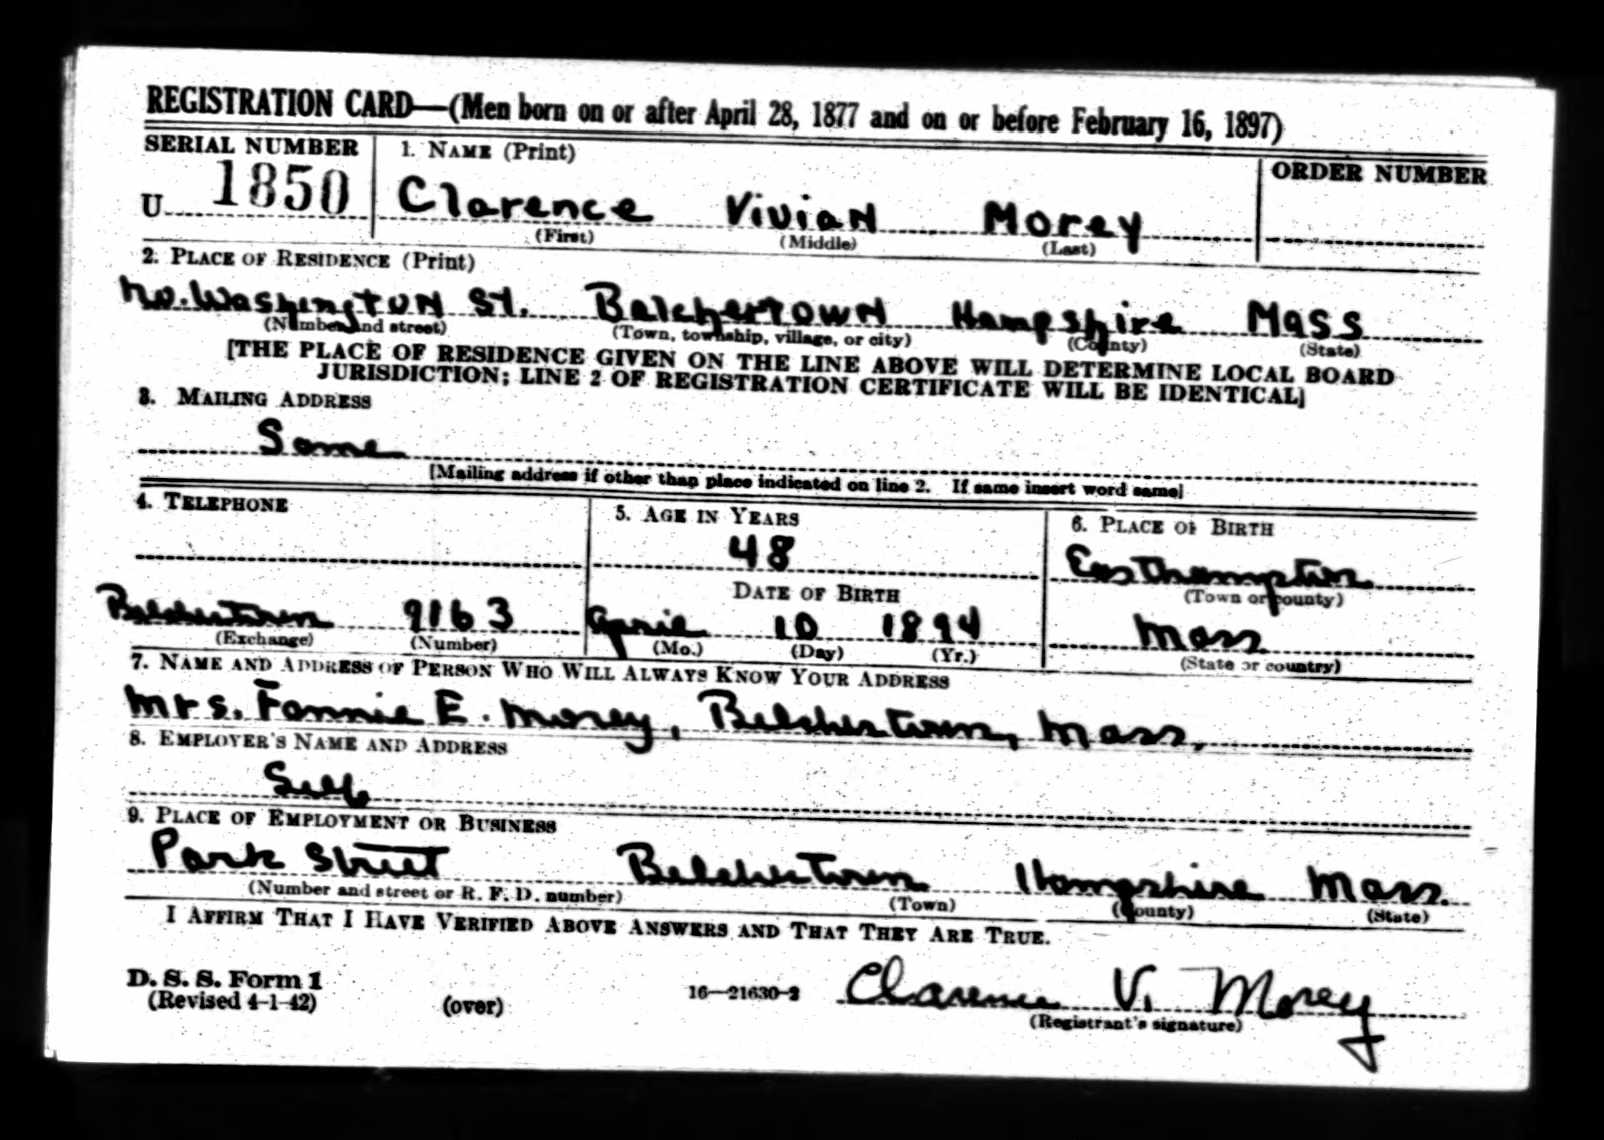 REGISTRATION CARD—(Men born on or after April 28, 1877 and on or before February 16, 1897)
SERIAL NUMBER 1. NAME (Print) ORDER NUMBER
U 1850 Clarence Vivian Morey
(First) (Middle) (Last)
2. PLACE OF RESIDENCE (Print)
No. Washington St. Belchertown Hampshire Mass
(Number and street) (Town, township, village, or city) (County) (State)
[THE PLACE OF RESIDENCE GIVEN ON THE LINE ABOVE WILL DETERMINE LOCAL BOARD
JURISDICTION; LINE 2 OF REGISTRATION CERTIFICATE WILL BE IDENTICAL]
3. MAILING ADDRESS
Same
[Mailing address if other than place indicated on line 2. If same insert word same]
4. TELEPHONE 5. AGE IN YEARS 6. PLACE OF BIRTH
48 Easthampton
DATE OF BIRTH (Town or county)
Belchertown 9163 April 10 1894 Mass
(Exchange) (Number) (Mo.) (Day) (Yr.) (State or country)
7. NAME AND ADDRESS OF PERSON WHO WILL ALWAYS KNOW YOUR ADDRESS
Mrs. Fannie E. Morey, Belchertown, Mass.
8. EMPLOYER'S NAME AND ADDRESS
Self
9. PLACE OF EMPLOYMENT OR BUSINESS
Park Street Belchertown Hampshire Mass.
(Number and street or R. F. D. number) (Town) (County) (State)
I AFFIRM THAT I HAVE VERIFIED ABOVE ANSWERS AND THAT THEY ARE TRUE.
D. S. S. Form 1
(Revised 4-1-42) (over) 16—21630-2 Clarence V. Morey
(Registrant's signature)